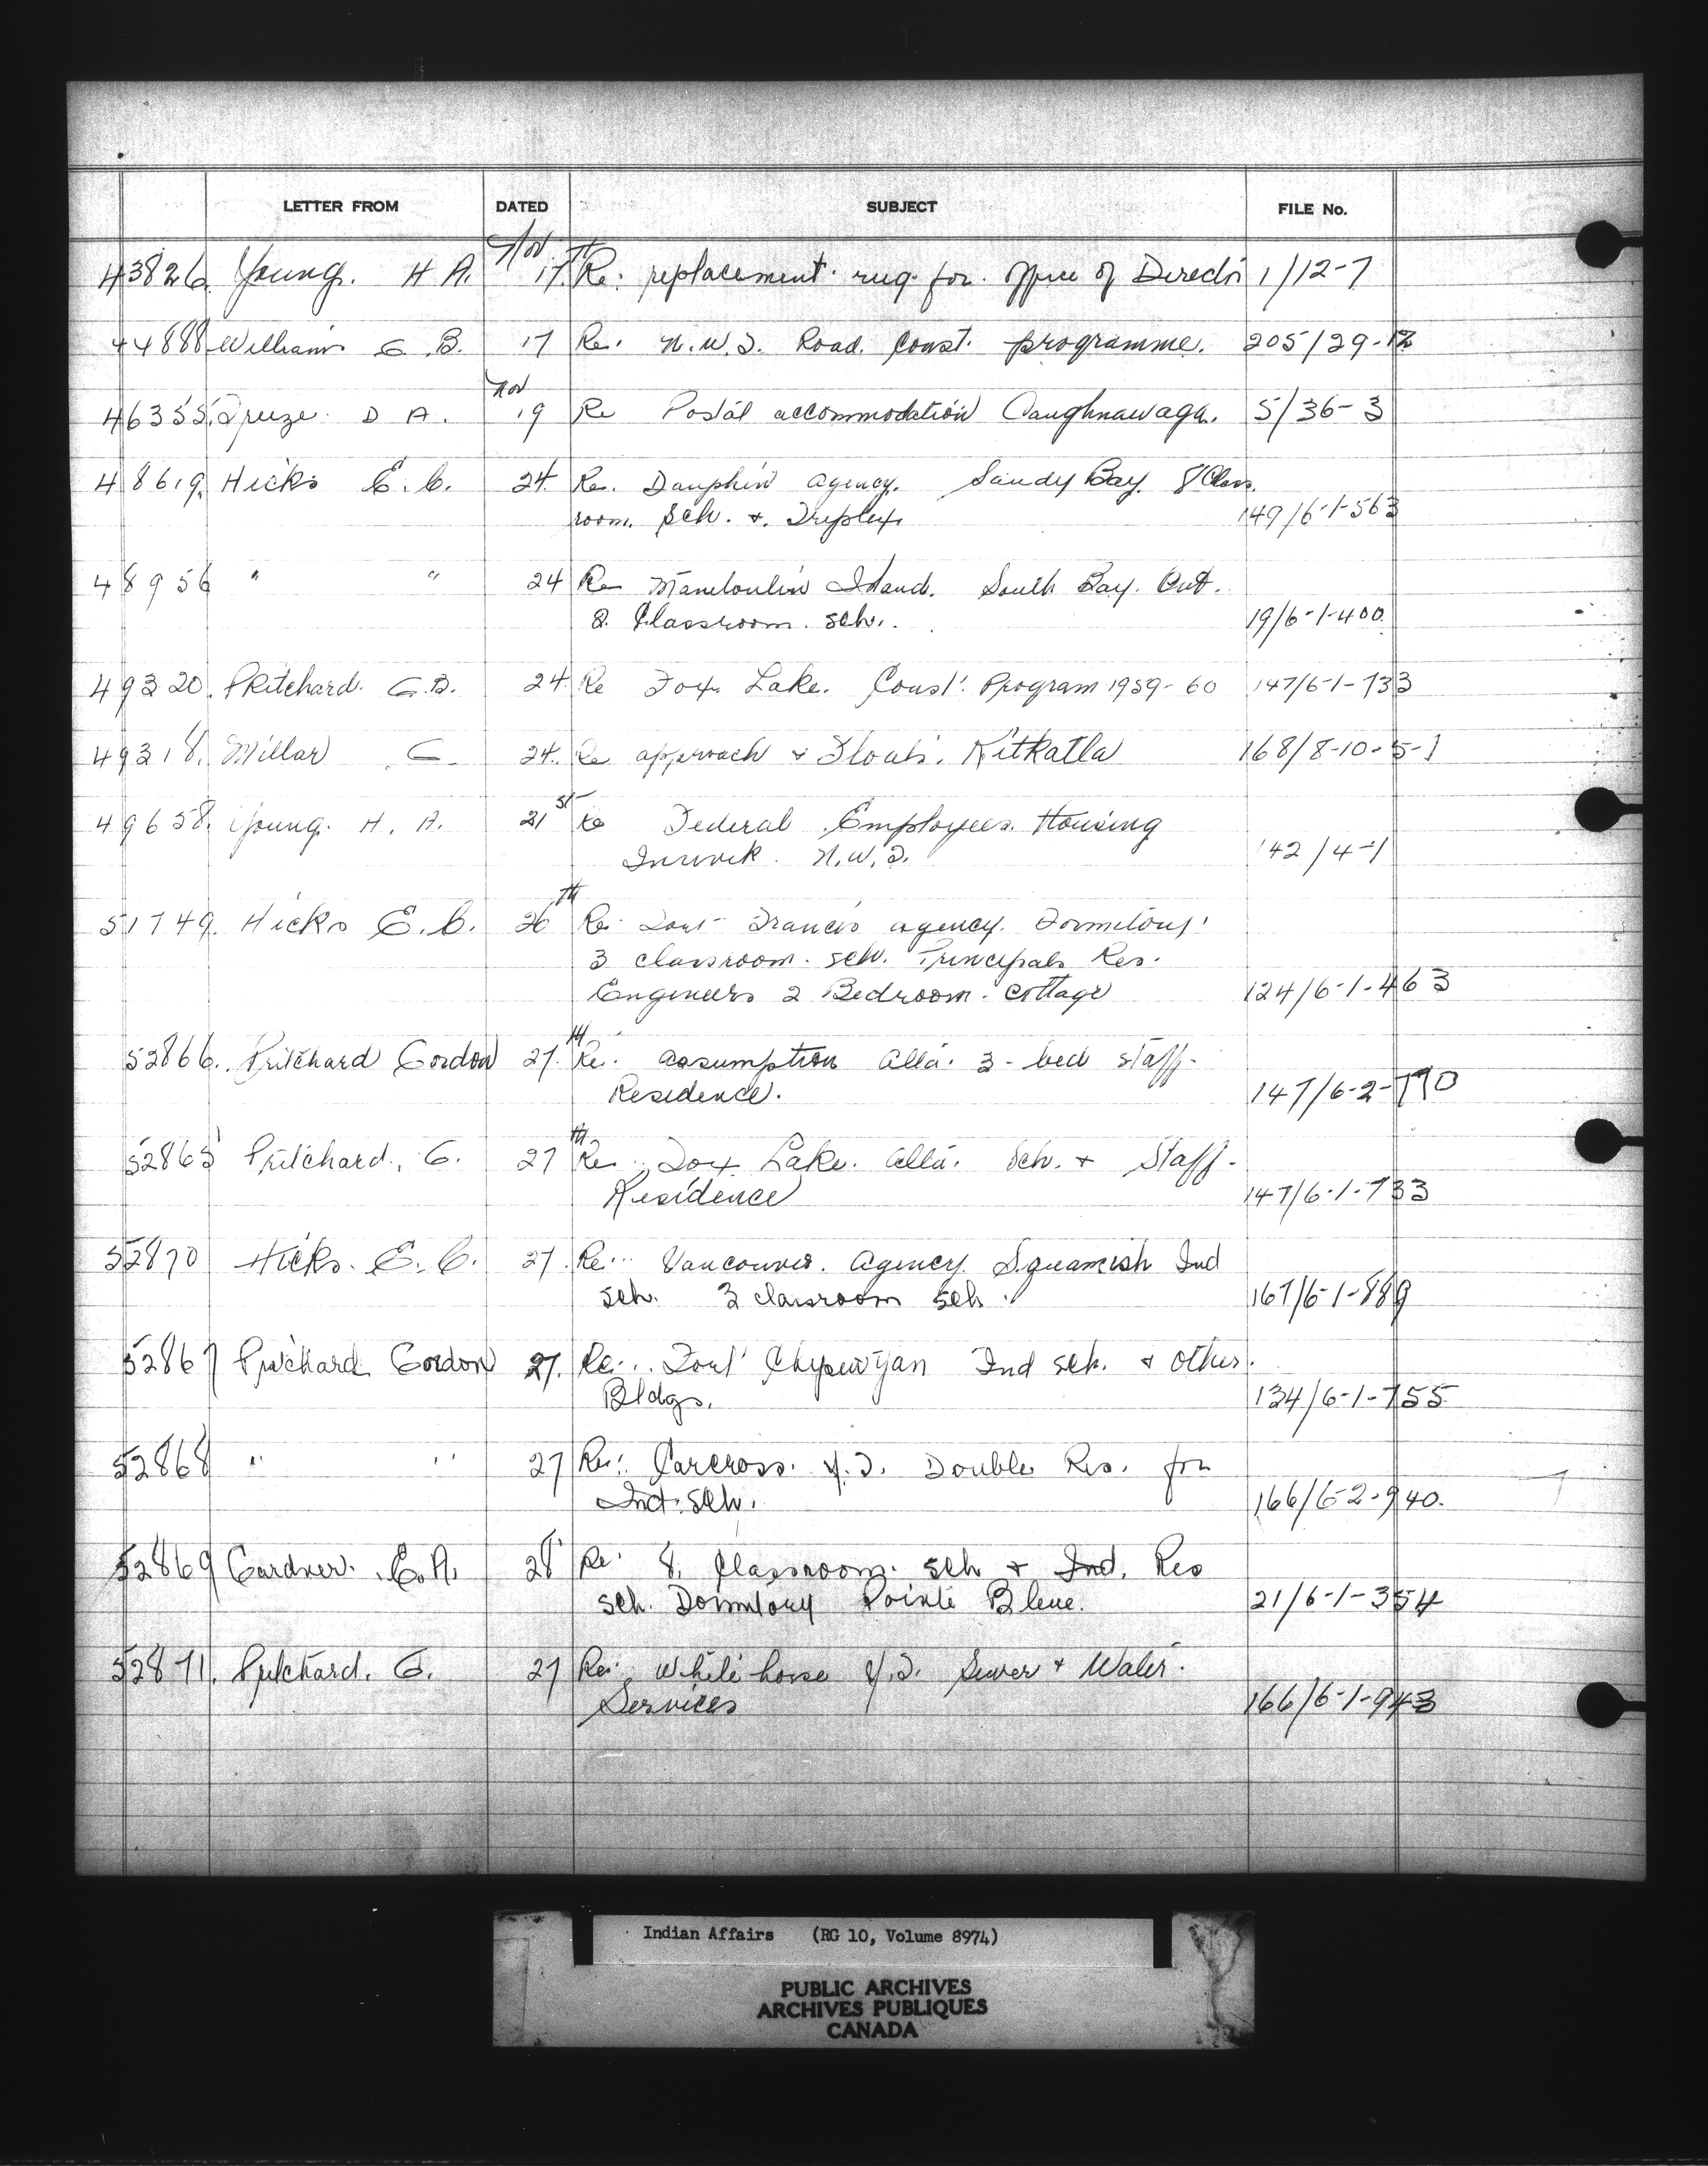 LETTER FROM DATED SUBJECT FILE No.
43826 Young. H A. Nov 17th Re: replacement rug for office of Director 1/12-7
44888 Williams G. B. 17 Re. N.W.T. Road Const. programme. 205/29-12
46355. D A. Nov 19 Re Postal accommodation Caughnawaga. 5/36-3
48619. Hicks E. C. 24 Re. Dauphin agency. Sandy Bay 8 Class
room. Sch. + Triplex 149/6-1-563
48956 " " 24 Re Manitoulin Island. South Bay. Ont.
2 Classroom. sch. 19/6-1-400
49320. Pritchard. G.B. 24. Re Fox Lake. Const. Program 1959-60 147/6-1-733
49318. Millar G. 24. Re approach + Floats. Kitkatla 168/8-10-5-1
49658. Young. H. A. 21st Re Federal Employees Housing
Inuvik. N.W.T. 142/4-1
51749. Hicks E. C. 26th Re: Fort Francis agency. Dormitory
3 classroom. sch. Principals Res.
Engineers 2 Bedroom cottage 124/6-1-463
52866. Pritchard Gordon 27th Re. assumption Alta. 3-bed staff-
Residence. 147/6-2-770
52865 Pritchard, G. 27th Re. Fox Lake. Alta. Sch. + Staff-
Residence 147/6-1-733
52870 Hicks. E. C. 27. Re: Vancouver. Agency Squamish Ind
sch. 3 classroom sch. 167/6-1-889
52867 Pritchard Gordon 27. Re: Fort Chipewyan Ind sch. + other
Bldgs. 134/6-1-755
52868 " " 27 Re: Carcross. Y.T. Double Res. for
Ind. sch. 166/6-2-940.
52869 Gardner. E. A. 28 Re: 8. Classroom. sch + Ind. Res
sch. Dormitory Pointe Bleue. 21/6-1-354
52871. Pritchard. G. 27 Re: White horse Y.T. Sewer + Water
Services 166/6-1-943
Indian Affairs (RG 10, Volume 8974)
PUBLIC ARCHIVES
ARCHIVES PUBLIQUES
CANADA